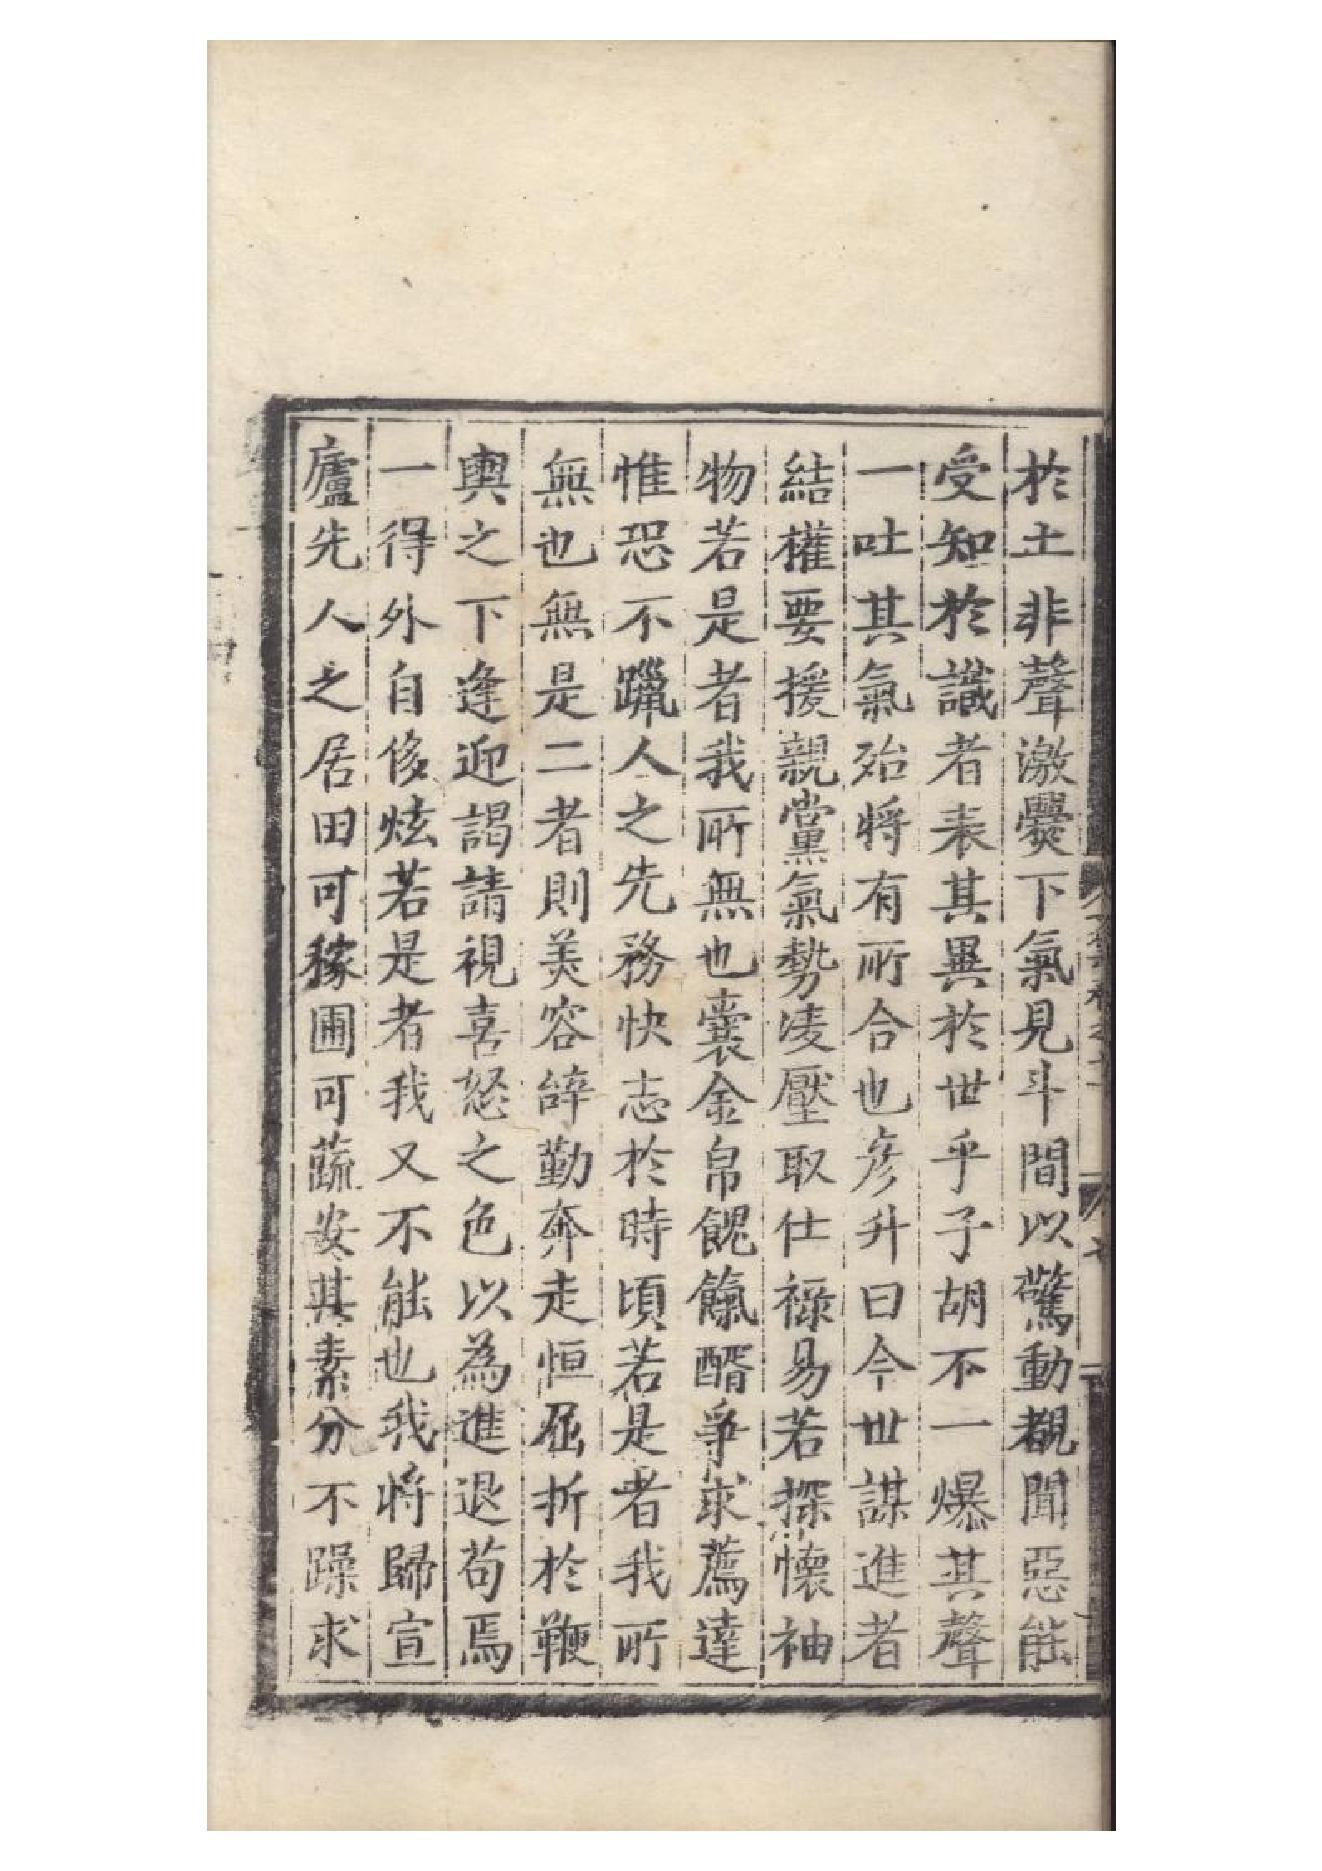 於土非聲激爨下氣見斗間以驚動覩聞惡能
受知於識者表其異於世乎子胡不一爆其聲
一吐其氣殆將有所合也彦升曰今世謀進者
結權要援親黨氣勢凌壓取仕祿易若探懷袖
物若是者我所無也囊金帛餽餼醑爭求薦達
惟恐不躐人之先務快志於時頃若是者我所
無也無是二者則美容辭勤奔走恒屈折於鞭
輿之下逢迎謁請視喜怒之色以為進退苟焉
一得外自侈炫若是者我又不能也我將歸宣
廬先人之居田可稼圃可蔬安其素分不躁求